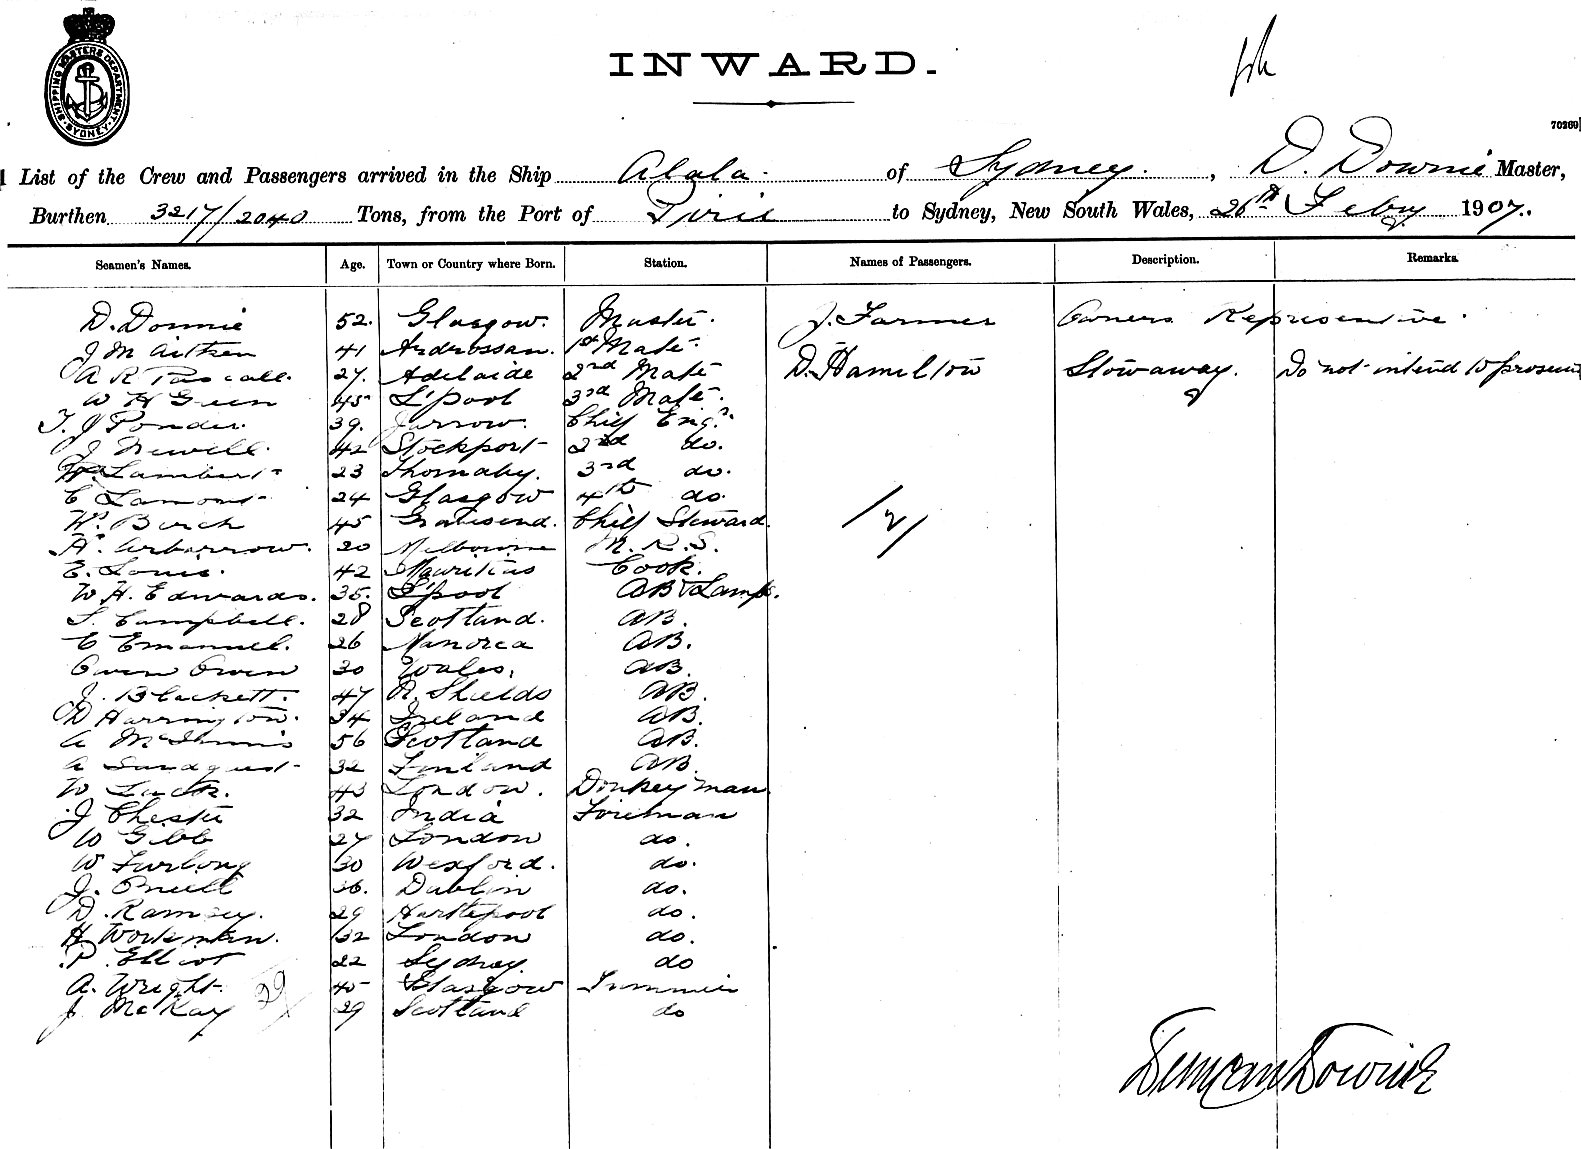 SHIPPING MASTERS DEPARTMENT
SYDNEY
INWARD.
70269
List of the Crew and Passengers arrived in the Ship Alala of Sydney, D. Downie Master,
Burthen 3217/2040 Tons, from the Port of to Sydney, New South Wales, 26th Feby 1907.
Seamen's Names. Age. Town or Country where Born. Station. Names of Passengers. Description. Remarks.
D. Downie 52. Glasgow. Master. J. Farmer Owners Representative.
J M Aitken 41 Ardrossan. 1st Mate.
A R Pascall. 27. Adelaide 2nd Mate D. Hamilton Stowaway. Do not intend to
W H Green 45 L'pool 3rd Mate.
T. J Ponder. 39. Jarrow. Chief Engr.
J Newell. 42 Stockport 2nd do.
Lambert 23 Thornaby. 3rd do.
C Lamont 24 Glasgow 4th do.
W. Birch 45 Gravesend. Chief Steward.
A. 20 Melbourne M. R. S.
E. Louis. 42 Mauritius Cook.
W. H. Edwards. 35. L'pool AB & Lamps.
Campbell. 28 Scotland. AB.
E Emanuel. 26 AB.
Owen Owen 30 Wales. AB.
J. Blackett. 47 N. Shields AB.
D Harrington. 34 Ireland AB.
A McInnis 56 Scotland AB.
A Sundquist 32 Finland AB.
W Luck. 43 London. Donkeyman
J Chester 32 India Fireman
W Gibb 27 London do.
W Furlong 30 Wexford. do.
J. Oneill 36. Dublin do.
D. Ramsey. 29 Hartlepool do.
H Workman. 32 London do.
P. Elliot 22 Sydney. do
A. Wright. 45 Glasgow Trimmer
J. McKay 29 Scotland do
29
Duncan Downie